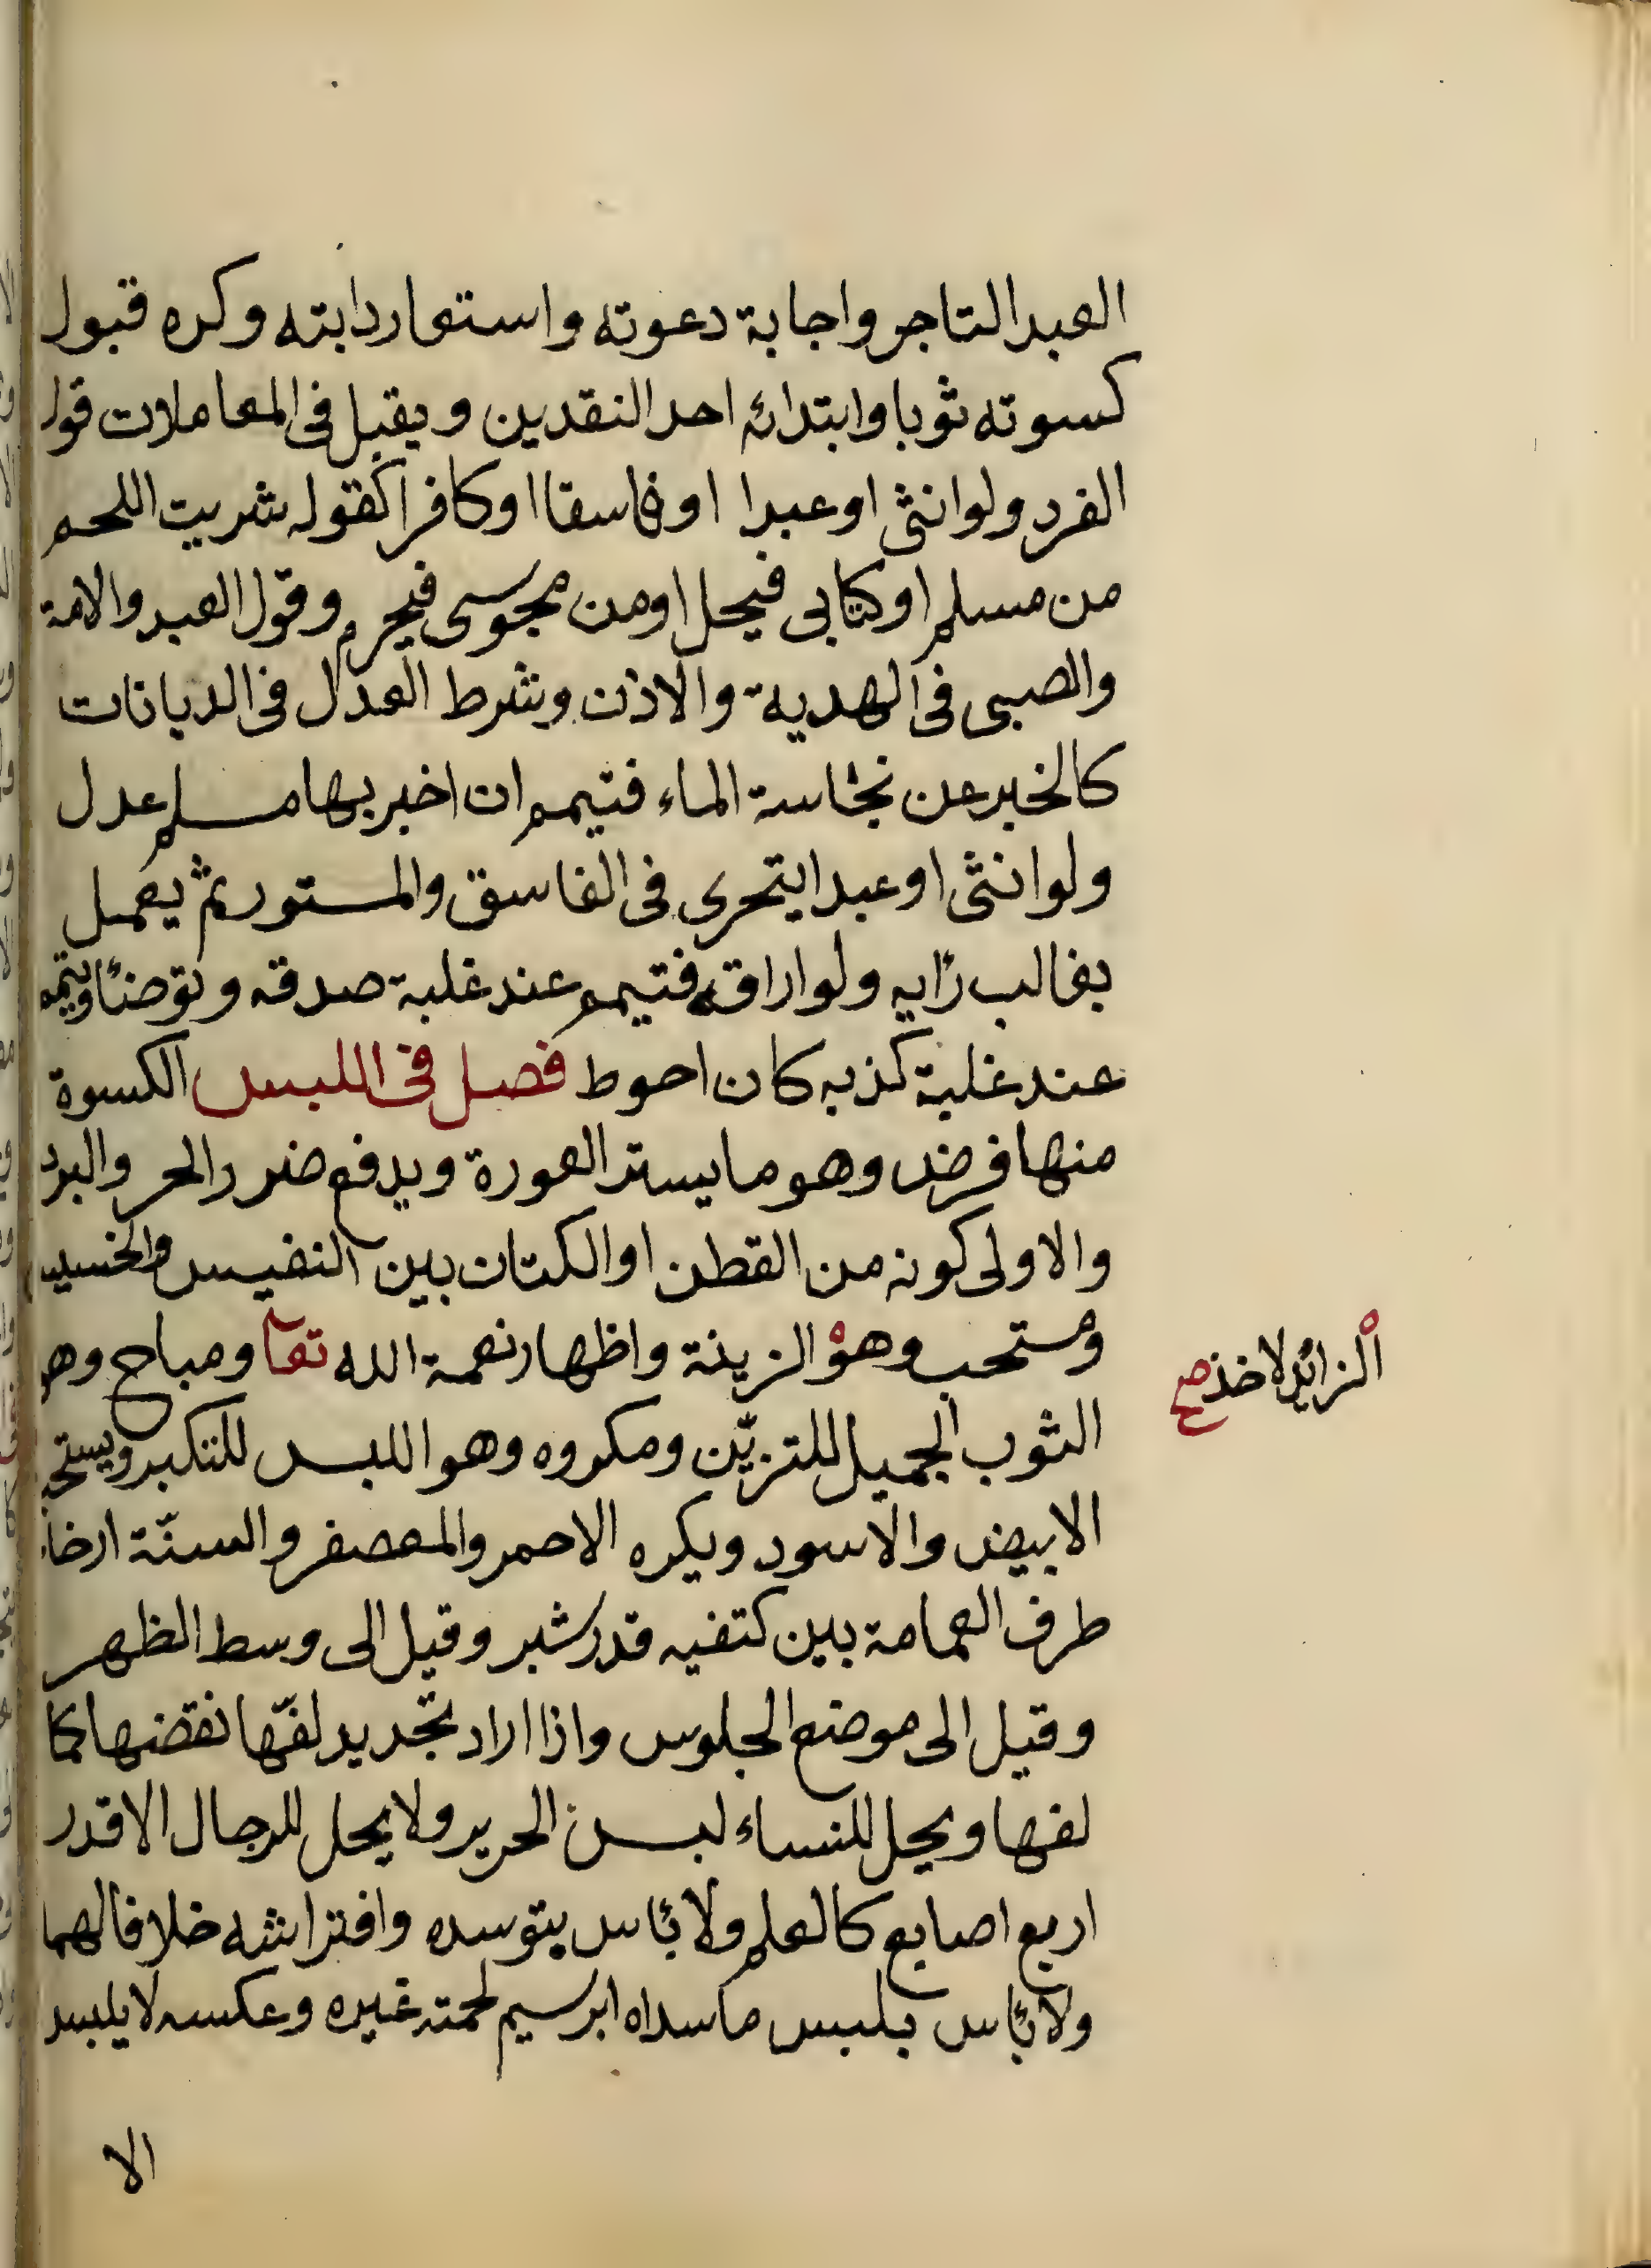 العبد التاجر واجابة دعوته واستعار دابته وكره قبول
كسوته ثوبا وابتدائه احد النقدين ويقبل فى المعاملات قول
الفرد ولو انثى او عبدا او فاسقا او كافرا كقوله شريت اللحم
من مسلم او كتابى فيحل او من مجوسى فيحرم وقول العبد والامة
والصبى فى الهدية والاذن وشرط العدل فى الديانات
كالخبر عن نجاسة الماء فتيمم ان اخبر بها مسلم عدل
ولو انثى او عبدا يتحرى فى الفاسق والمستور ثم يعمل
بغالب رأيه ولو اراقه فتيمم عند غلبة صدقه وتوضأ وتيمم
عند غلبة كذبه كان احوط فصل فى اللبس الكسوة
منها فرض وهو ما يستر العورة ويدفع ضرر الحر والبرد
والاولى كونه من القطن او الكتان بين النفيس والخسيس
ومستحب وهو الزينة واظهار نعمة الله تعا ومباح وهو
الزائد لاخذ صح
الثوب الجميل للتزيّن ومكروه وهو اللبس للتكبر ويستحب
الابيض والاسود ويكره الاحمر والمعصفر والسنّة ارخاء
طرف العمامة بين كتفيه قدر شبر وقيل الى وسط الظهر
وقيل الى موضع الجلوس واذا اراد تجديد لفّها نقضها كما
لفها ويحل للنساء لبس الحرير ولا يحل للرجال الا قدر
اربع اصابع كالعلم ولا بأس بتوسده وافتراشه خلافا لهما
ولا بأس بلبس ما سداه ابرسيم لحمته غيره وعكسه لا يلبس
الا